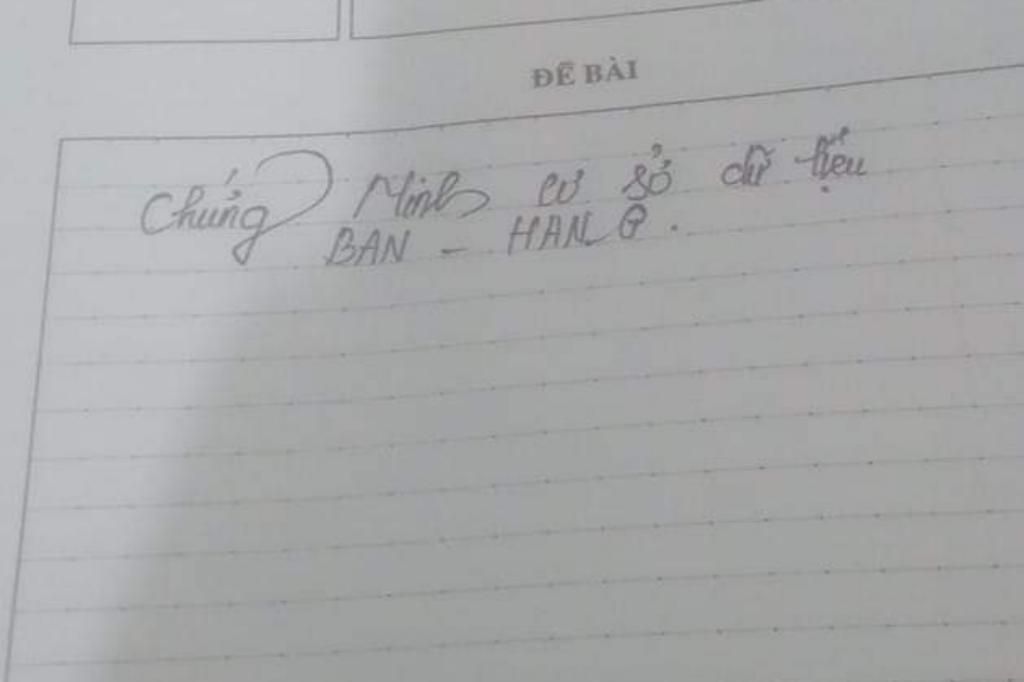 ĐỀ BÀI
Chứng Minh cơ sở dữ liệu
BAN - HANG.